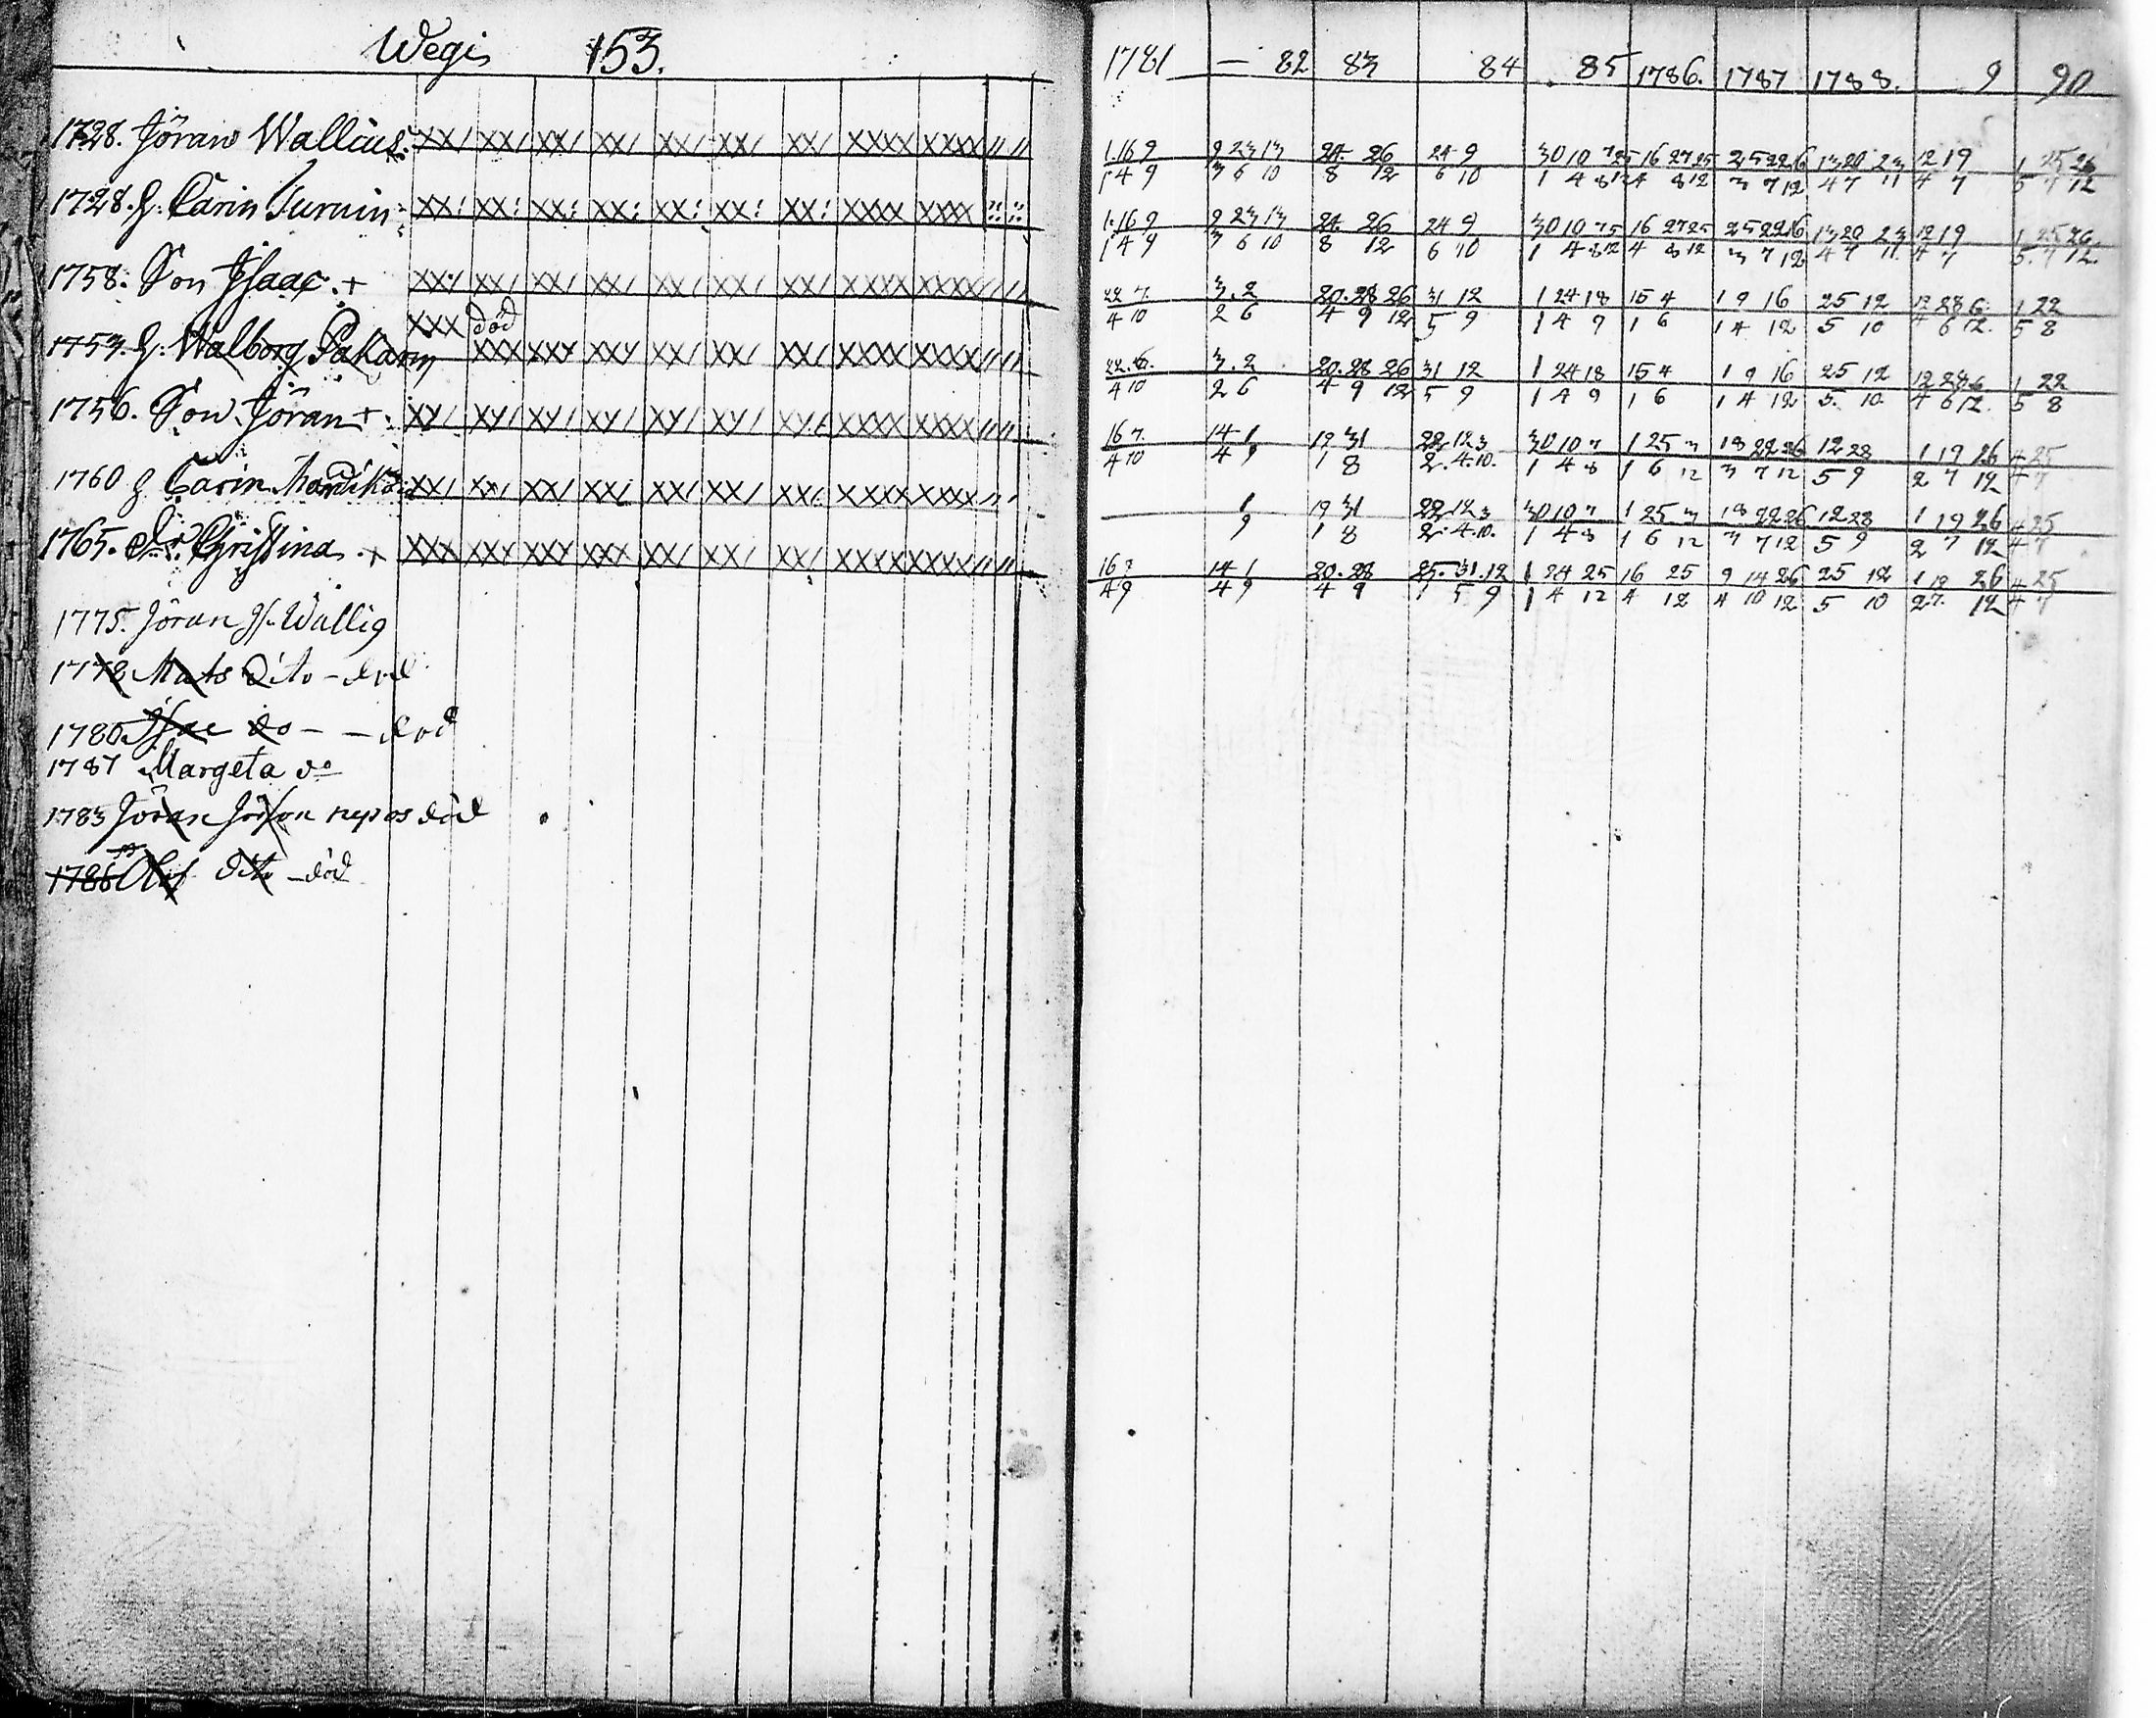 Wegis 153.
1728. Jöran Wallius.
1728. h. Carin Turuin
1758. Son Jsaac. +
död
1753. h. Walborg Pakarin
1756. Son Jöran +
1760 h Carin
1765. dr. Christina. +
1775. Jöran Wallig
1778 Mats dito - död
1780 Jsac do - - död
1787 Margeta do
1783 Jöran nepos död
1786 Olof dito - död
1781 — 82 83 84 85 1786. 1787 1788. 9 90
1.16 9 9 23 13 24 26 24 9 30 10 7 25 16 27 25 25 22 16 13 20 23 12 19 1 25 26
1 4 9 3 6 10 8 12 6 10 1 4 8 12 4 8 12 3 7 12 4 7 11 4 7 5 7 12
1.16 9 9 23 13 24 26 24 9 30 10 7 5 16 27 25 25 22 16 13 20 23 12 19 1 25 26
1 4 9 3 6 10 8 12 6 10 1 4 8 12 4 8 12 3 7 12 4 7 11 4 7 5. 7 12.
22 7. 3. 2 20. 28 26 31 12 1 24 18 15 4 1 9 16 25 12 12 28 6 1 22
4 10 2 6 4 9 12 5 9 1 4 9 1 6 1 4 12 5 10 4 6 12. 5 8
22. 6. 3. 2 20. 28 26 31 12 1 24 18 15 4 1 9 16 25 12 12 28 6 1 22
4 10 2 6 4 9 12 5 9 1 4 9 1 6 1 4 12 5. 10 4 6 12. 5 8
16 7. 14 1 19 31 22 12 3 30 10 7 1 25 3 18 22 26 12 28 1 19 26 4 25
4 10 4 9 1 8 2. 4. 10. 1 4 8 1 6 12 3 7 12 5 9 2 7 12 4 7
1 19 31 22 12 3 30 10 7 1 25 3 18 22 26 12 28 1 19 26 4 25
9 1 8 2. 4. 10. 1 4 8 1 6 12 3 7 12 5 9 2 7 12 4 7
16 7 14 1 20. 28 25. 31. 12 1 24 25 16 25 9 14 26 25 12 1 19 26 4 25
4 9 4 9 4 9 1 5 9 1 4 12 4 12 4 10 12 5 10 2 7. 12 4 7